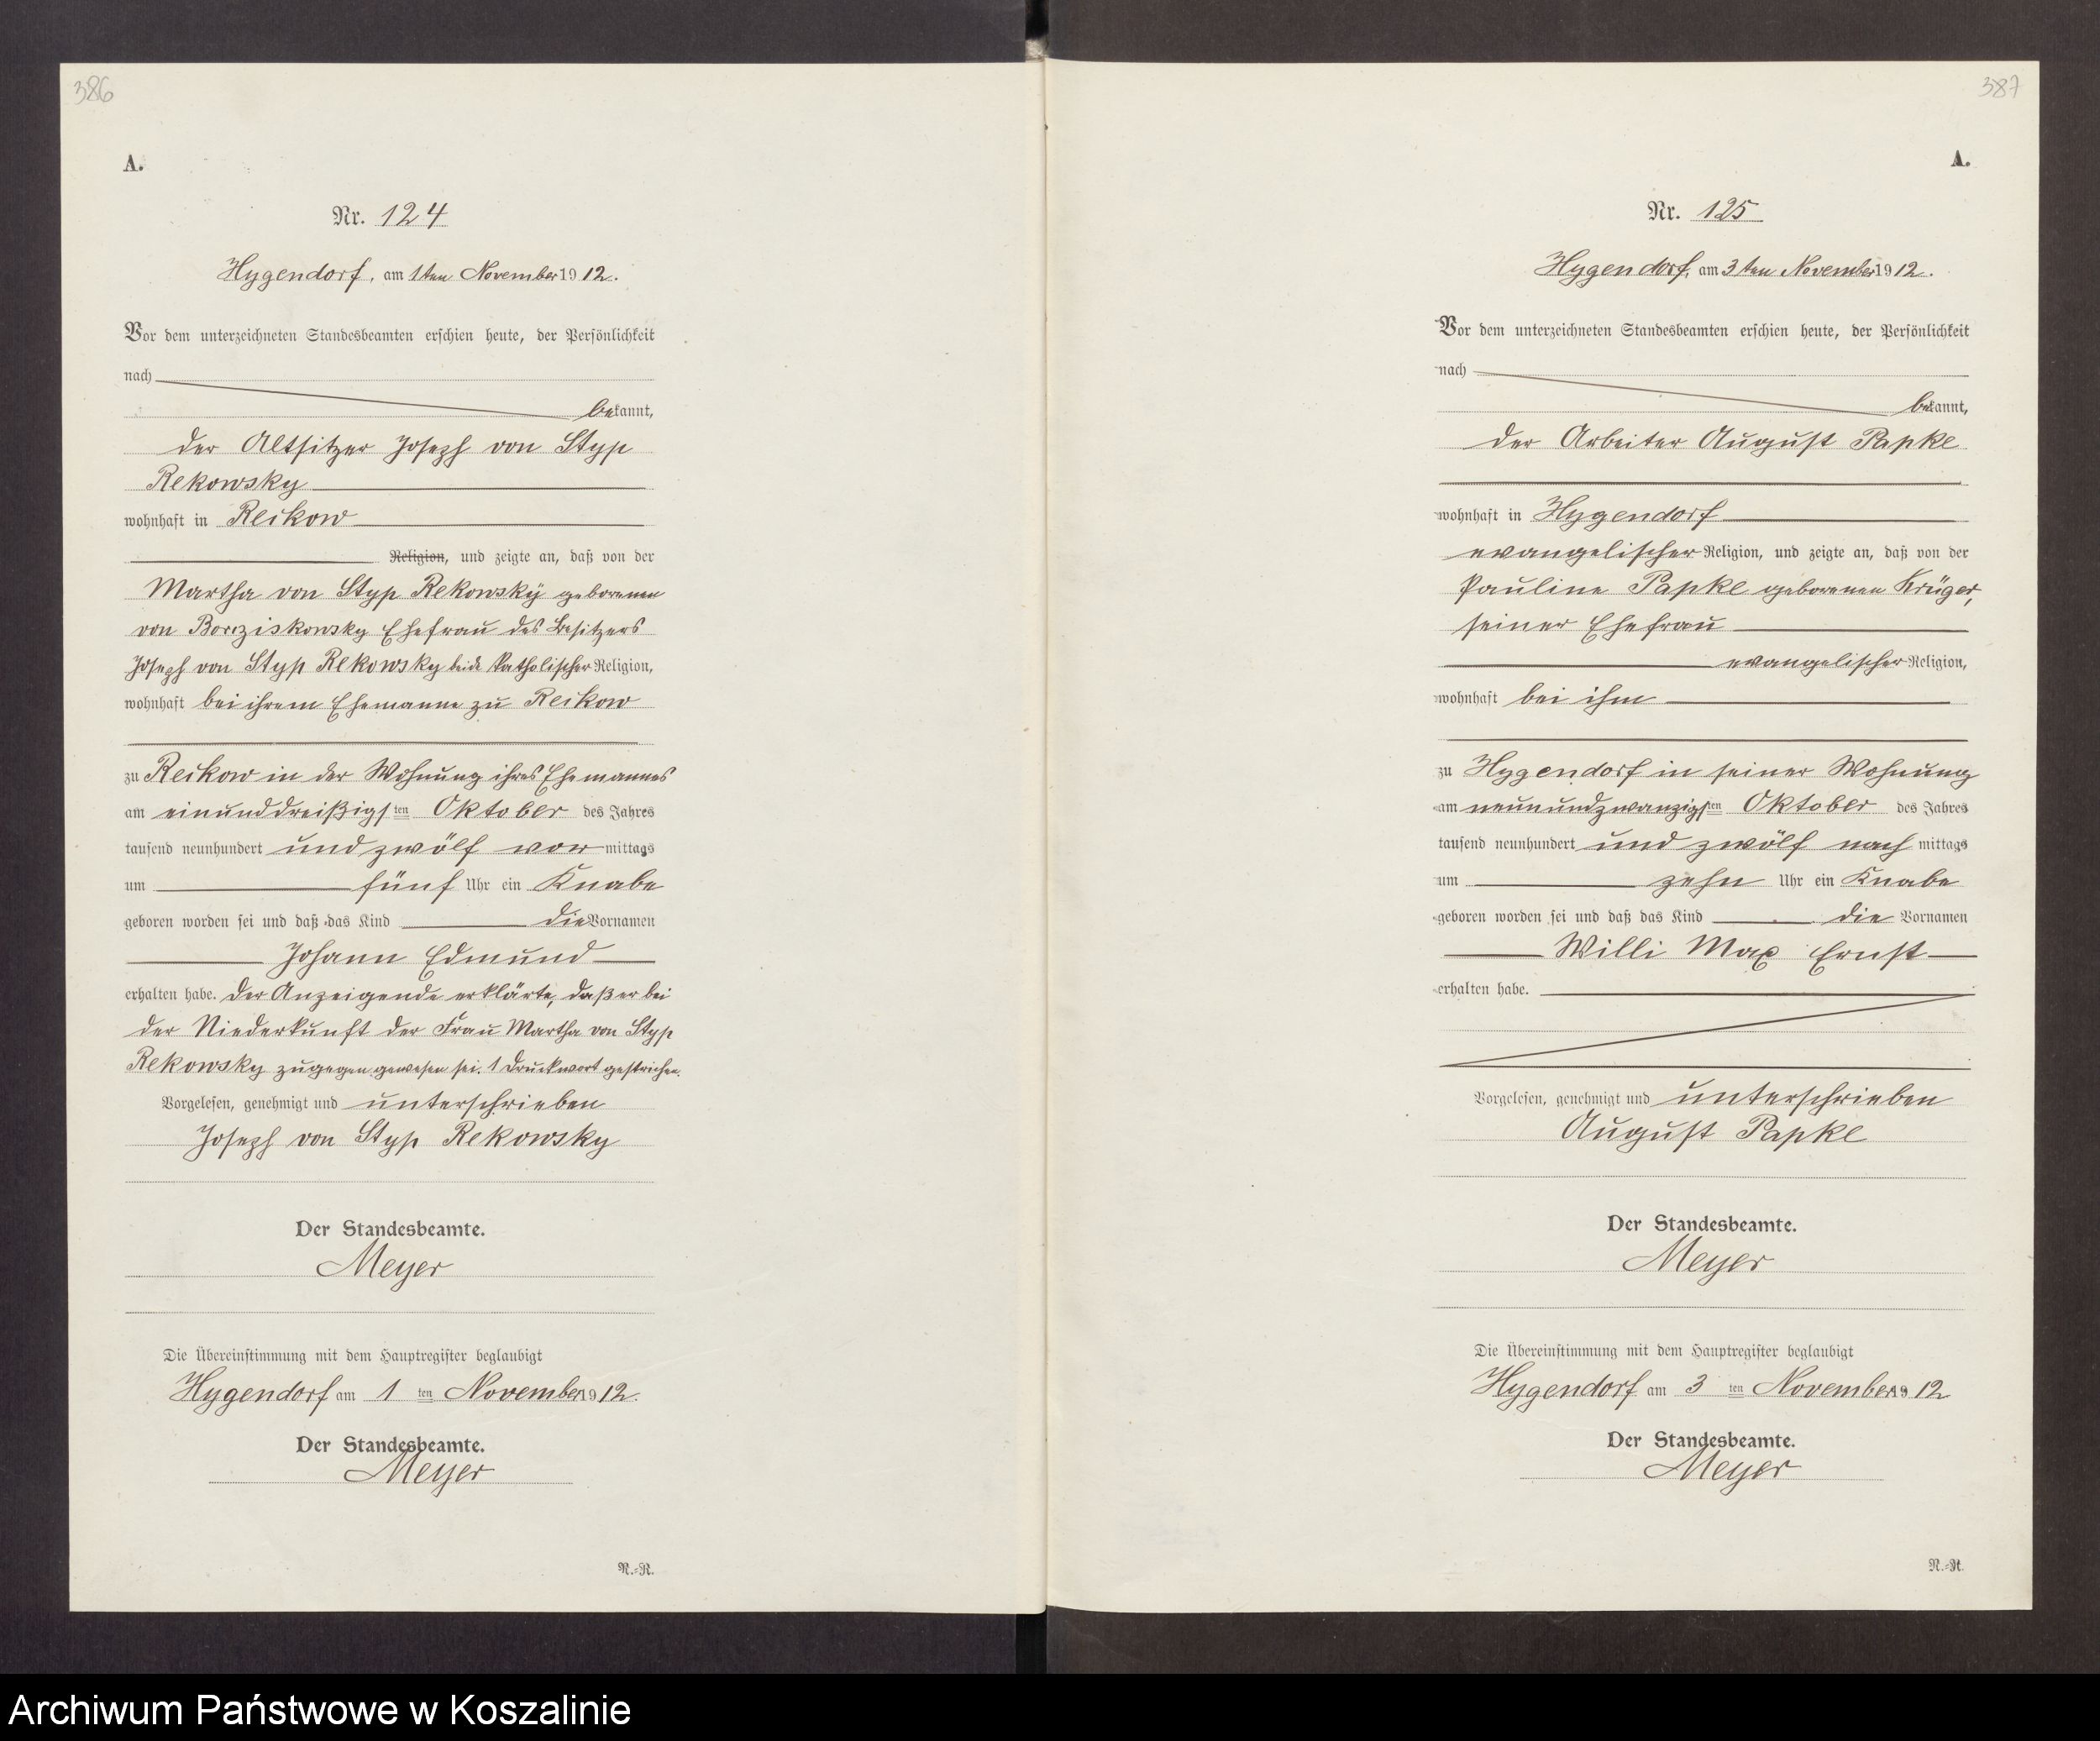 386
A.
Nr. 124
Hygendorf, am 1ten November 1912.
Vor dem unterzeichneten Standesbeamten erschien heute, der Persönlichkeit
nach
bekannt,
der Altsitzer Joseph von Styp
Rekowsky
wohnhaft in Reikow
Religion, und zeigte an, daß von der
Martha von Styp Rekowsky geborenen
von Borzískowsky Ehefrau des Besitzers
Joseph von Styp Rekowsky beide katholischer Religion,
wohnhaft bei ihrem Ehemanne zu Reikow
zu Reikow in der Wohnung ihres Ehemannes
am einunddreißigsten Oktober des Jahres
tausend neunhundert und zwölf vormittags
um fünf Uhr ein Knabe
geboren worden sei und daß das Kind die Vornamen
Johann Edmund
erhalten habe. Der Anzeigende erklärte, daß er bei
der Niederkunft der Frau Martha von Styp
Rekowsky zugegen gewesen sei. 1 Druckwort gestrichen.
Vorgelesen, genehmigt und unterschrieben
Joseph von Styp Rekowsky
Der Standesbeamte.
Meyer
Die Übereinstimmung mit dem Hauptregister beglaubigt
Hygendorf am 1ten November 1912.
Der Standesbeamte.
Meyer
N.-R.
387
A.
Nr. 125
Hygendorf, am 3ten November 1912.
Vor dem unterzeichneten Standesbeamten erschien heute, der Persönlichkeit
nach
bekannt,
der Arbeiter August Papke
wohnhaft in Hygendorf
evangelischer Religion, und zeigte an, daß von der
Pauline Papke geborenen Krüger,
seiner Ehefrau
evangelischer Religion,
wohnhaft bei ihm
zu Hygendorf in seiner Wohnung
am neunundzwanzigsten Oktober des Jahres
tausend neunhundert und zwölf nachmittags
um zehn Uhr ein Knabe
geboren worden sei und daß das Kind die Vornamen
Willi Max Ernst
erhalten habe.
Vorgelesen, genehmigt und unterschrieben
August Papke
Der Standesbeamte.
Meyer
Die Übereinstimmung mit dem Hauptregister beglaubigt
Hygendorf am 3ten November 1912
Der Standesbeamte.
Meyer
N.-R.
Archiwum Państwowe w Koszalinie